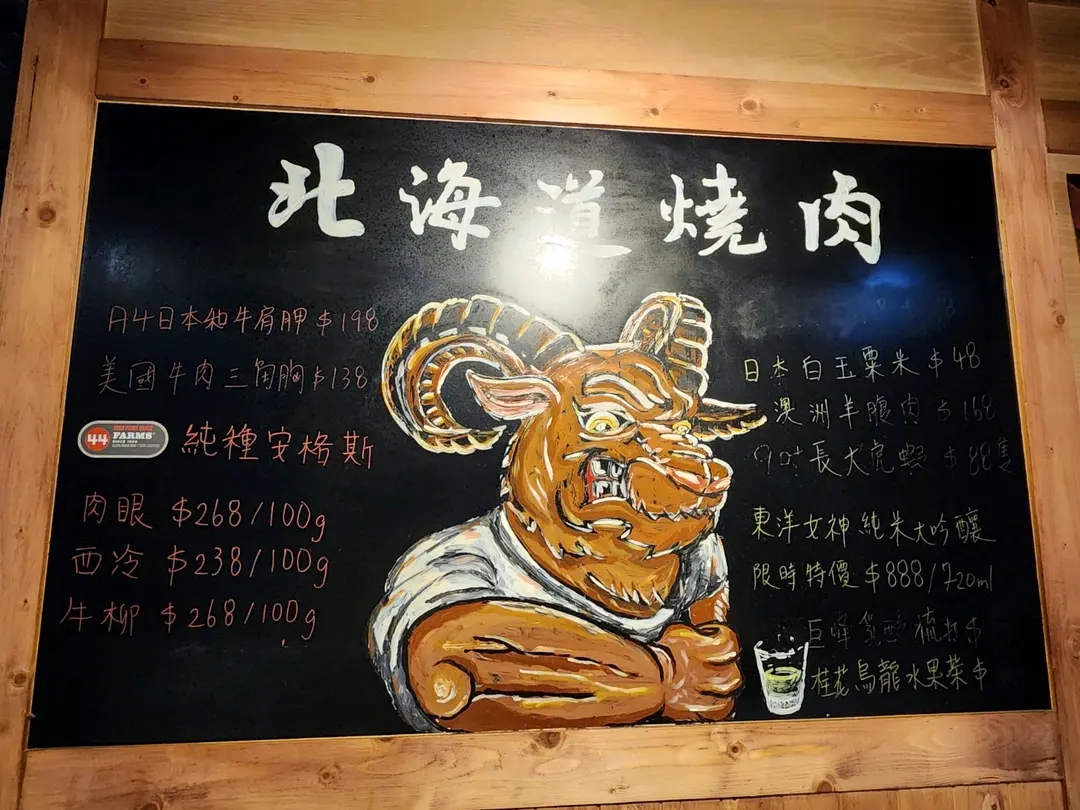 北海道燒肉
A4日本和牛肩胛 $198
美國牛肉三角胸 $138
44 FARMS
純種安格斯
肉眼 $268/100g
西冷 $238/100g
牛柳 $268/100g
日本白玉粟米 $48
澳洲羊腹肉 $168
9吋長大虎蝦 $88隻
東洋女神純米大吟釀
限時特價 $888/720ml
巨峰 梳打 $
桂花烏龍水果茶 $